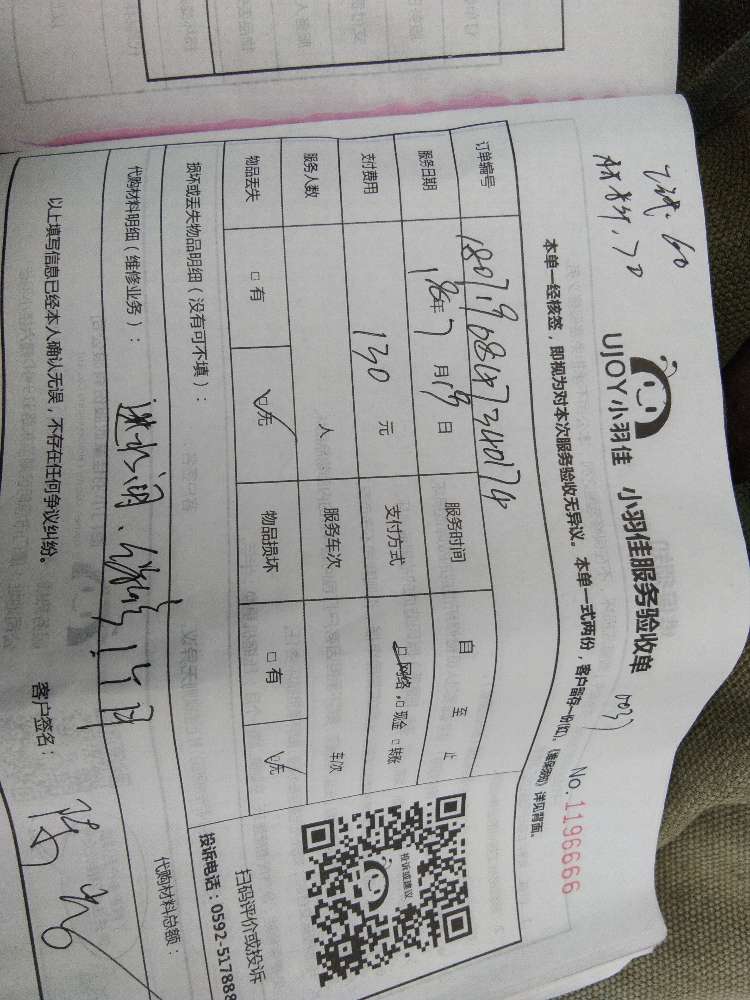 材料, 70
UJOY小羽佳
小羽佳服务验收单
No.1196666
本单一经核签，即视为对本次服务验收无异议。本单一式两份，客户留存一份(红)。《售后须知》详见背面。
订单编号
服务日期 18年7月19日 服务时间 自 至 止
支付费用 130 元 支付方式 □网络 □现金 □转账
服务人数 人 服务车次 车次
物品丢失 □有 □无 物品损坏 □有 □无
损坏或丢失物品明细（没有可不填）：
代购材料明细（维修业务）： 代购材料总额：
以上填写信息已经本人确认无误，不存在任何争议纠纷。 客户签名：
投诉或建议
扫码评价或投诉
投诉电话：0592-517888